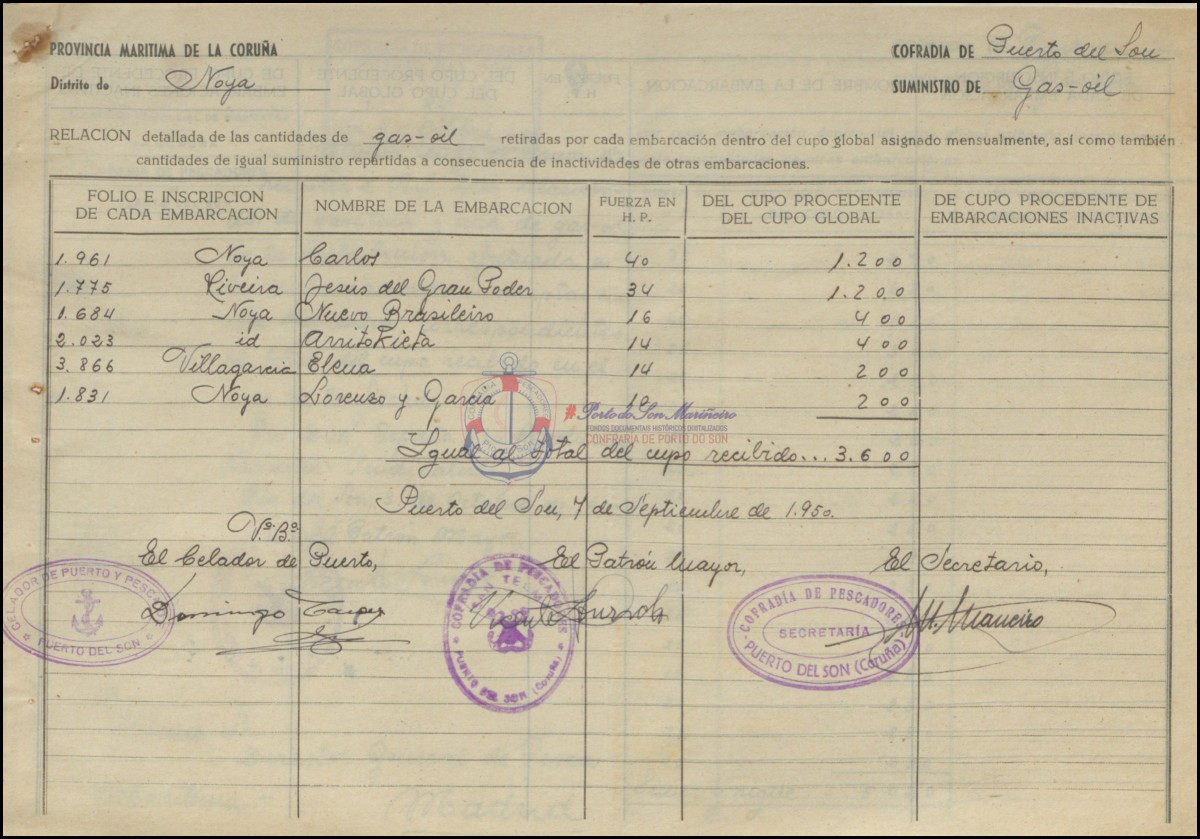 PROVINCIA MARITIMA DE LA CORUÑA
COFRADIA DE Puerto del Son
Distrito de Noya
SUMINISTRO DE Gas-oil
RELACION detallada de las cantidades de gas-oil retiradas por cada embarcación dentro del cupo global asignado mensualmente, así como también
cantidades de igual suministro repartidas a consecuencia de inactividades de otras embarcaciones.
FOLIO E INSCRIPCION DE CADA EMBARCACION NOMBRE DE LA EMBARCACION FUERZA EN H. P. DEL CUPO PROCEDENTE DEL CUPO GLOBAL DE CUPO PROCEDENTE DE EMBARCACIONES INACTIVAS
1.961 Noya Carlos 40 1.200
1.775 Riveira Jesús del Gran Poder 34 1.200
1.684 Noya Nuevo Brasileiro 16 400
2.023 id 14 400
3.866 Villagarcia Elena 14 200
1.831 Noya Lorenzo y García 10 200
#PortodoSonMariñeiro
FONDOS DOCUMENTAIS HISTÓRICOS DIXITALIZADOS
CONFRARÍA DE PORTO DO SON
Igual al total del cupo recibido... 3.600
Puerto del Son, 7 de Septiembre de 1.950.
Vº.Bº.
El Celador de Puerto, El Patrón Mayor, El Secretario,
CELADOR DE PUERTO Y PESCA
PUERTO DEL SON
Domingo
COFRADIA DE PESCADORES
SAN TELMO
PUERTO DEL SON (Coruña)
Vicente
COFRADÍA DE PESCADORES
SECRETARÍA
PUERTO DEL SON (Coruña)
Maneiro